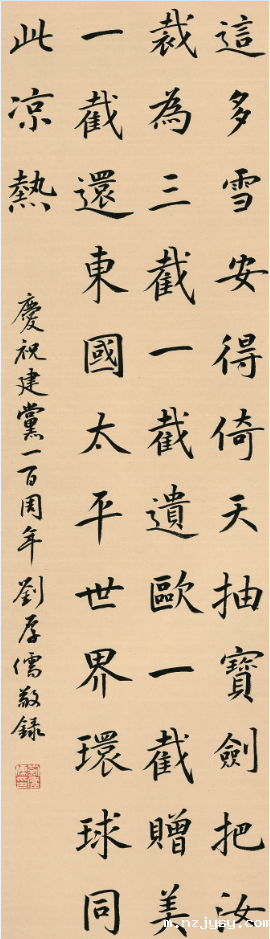 這多雪安得倚天抽寶劍把汝
裁為三截一截遺歐一截贈美
一截還東國太平世界環球同
此涼熱
慶祝建黨一百周年劉厚儒敬錄
m.nzjysy.com